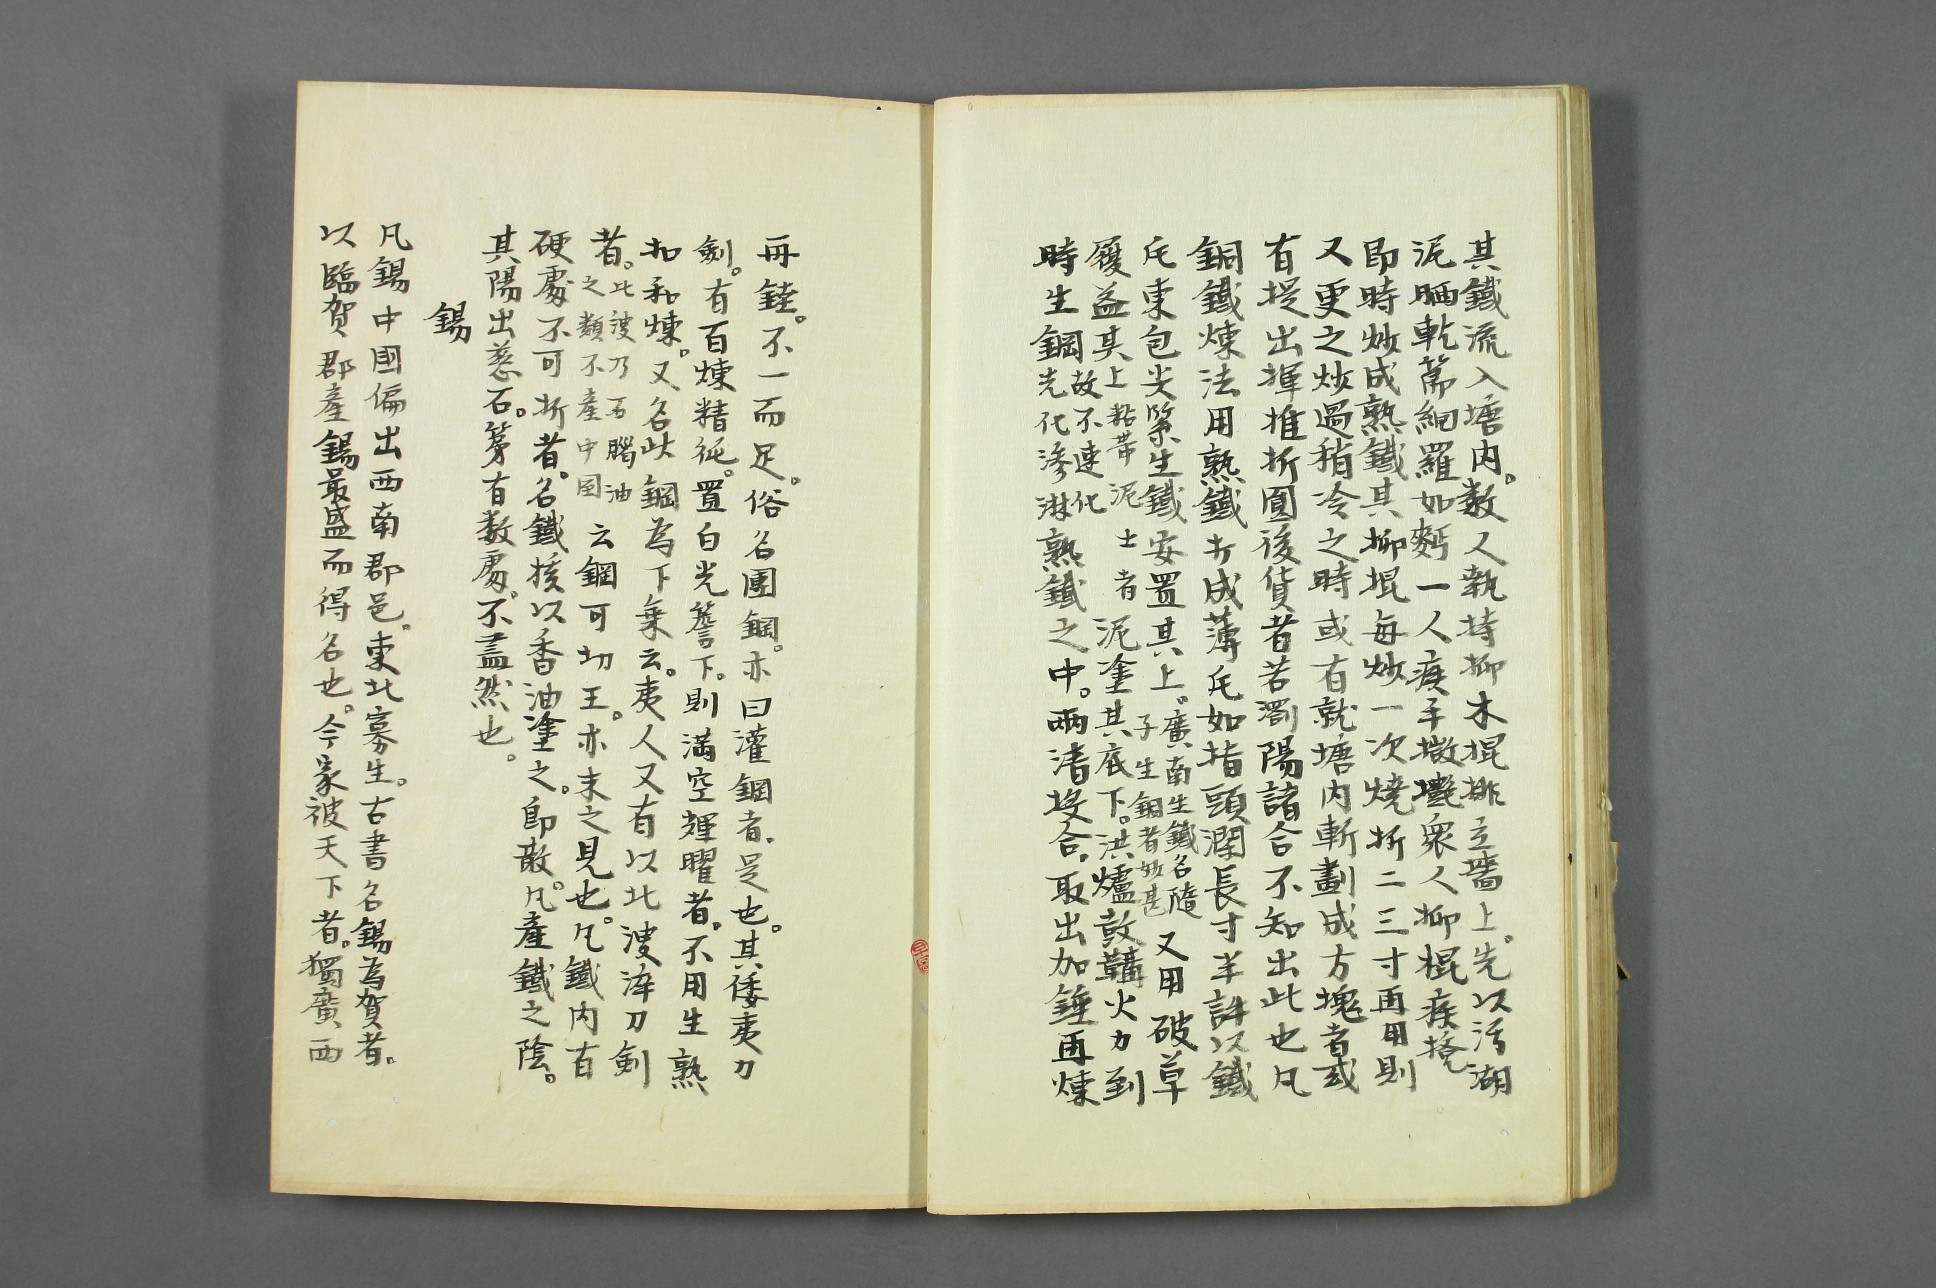 其鐵流入塘内。数人執持柳木棍排立墻上。先以污湖
泥晒乾篩細羅如麪一人疾手撒攤衆人柳棍疾攪
即時炒成熟鐵其柳棍每炒一次燒折二三寸再用則
又更之炒過稍冷之時或有就塘内斬劃成方塊者或
有提出揮推折圓後貨者若瀏陽諸合不知出此也凡
鋼鐵煉法用熟鐵打成薄片如指頭濶長寸半許以鐵
片束包尖緊生鐵安置其上。廣南生鐵名隨
子生鋼者妙甚又用破草
履蓋其上粘帶泥土者
故不速化泥塗其底下。洪爐鼓鞲火力到
時生鋼先化滲淋熟鐵之中。兩渚投合。取出加錘再煉
再錘。不一而足。俗名團鋼。亦曰灌鋼者。是也。其倭夷刀
劍。有百煉精純。置白光簷下。則滿空輝曜者。不用生熟
相和煉。又名此鋼為下乗云。夷人又有以北溲淬刀劍
者。北溲乃石腦油
之類不產中国云鋼可切王。亦末之見也。凡鐵内有
硬處不可折者。名鐵核以香油塗之。即散。凡産鐵之陰。
其陽出慈石。第有数處。不盡然也。
錫
凡錫中國偏出西南郡邑。東北寡生。古書名錫為賀者。
以臨賀郡產錫最盛而得名也。今家被天下者。獨廣西